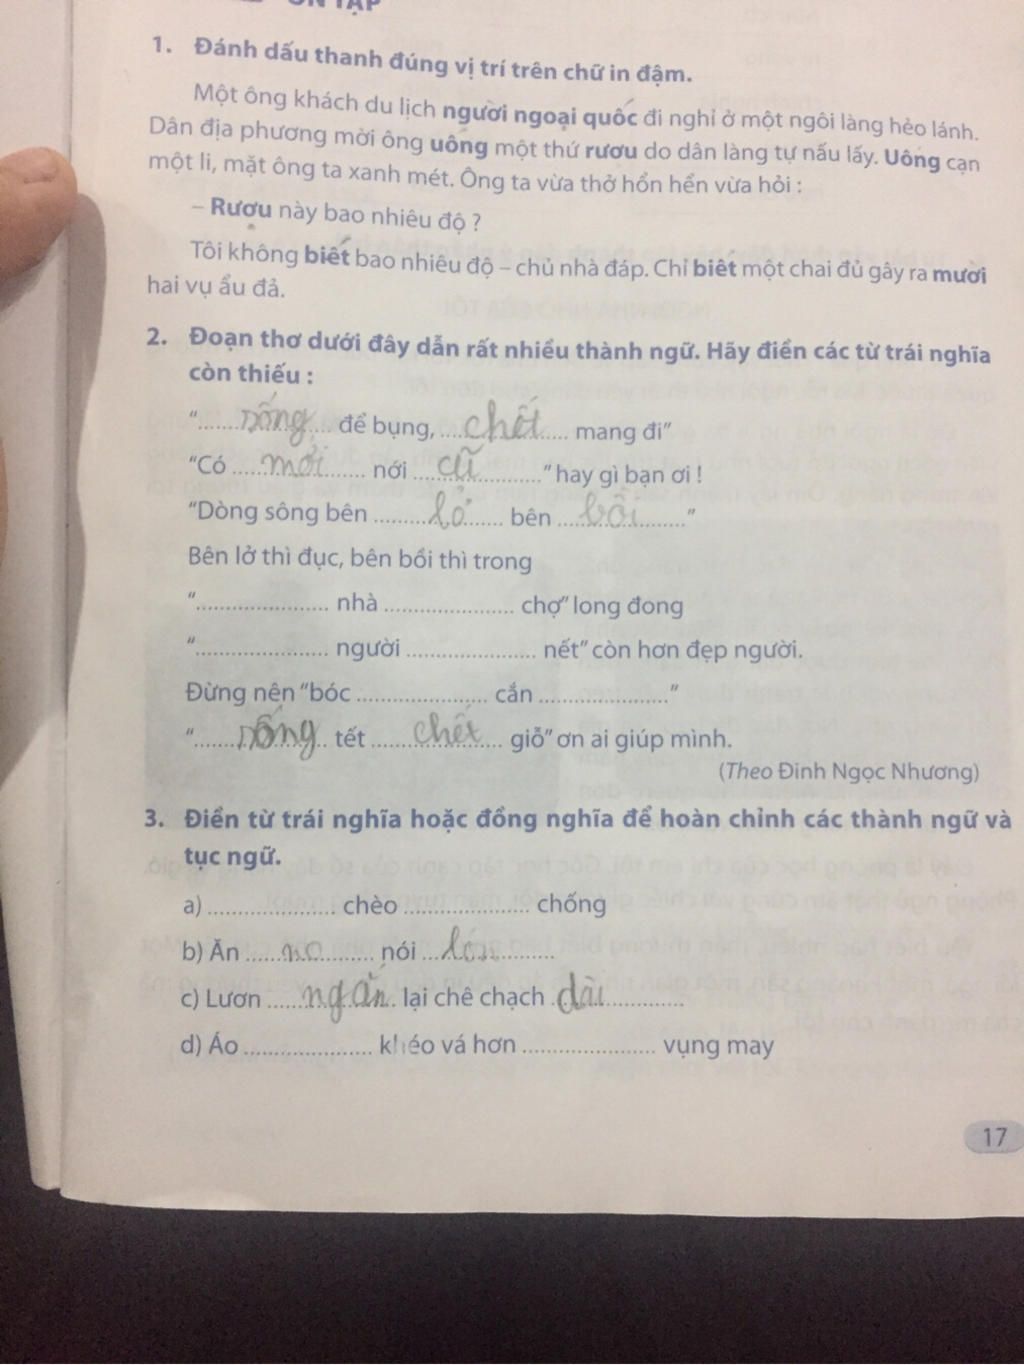 ÔN TẬP
1. Đánh dấu thanh đúng vị trí trên chữ in đậm.
Một ông khách du lịch người ngoại quốc đi nghỉ ở một ngôi làng hẻo lánh.
Dân địa phương mời ông uông một thứ rươu do dân làng tự nấu lấy. Uông cạn
một li, mặt ông ta xanh mét. Ông ta vừa thở hổn hển vừa hỏi :
– Rượu này bao nhiêu độ ?
Tôi không biết bao nhiêu độ – chủ nhà đáp. Chỉ biêt một chai đủ gây ra mươi
hai vụ ẩu đả.
2. Đoạn thơ dưới đây dẫn rất nhiều thành ngữ. Hãy điền các từ trái nghĩa
còn thiếu :
“.....sống..... để bụng, .....chết..... mang đi”
“Có .....mới..... nới .....cũ.....” hay gì bạn ơi !
“Dòng sông bên .....lở..... bên .....bồi.....”
Bên lở thì đục, bên bồi thì trong
“.................... nhà .................... chợ” long đong
“.................... người .................... nết” còn hơn đẹp người.
Đừng nên “bóc .................... cắn ....................”
“.....sống..... tết .....chết..... giỗ” ơn ai giúp mình.
(Theo Đinh Ngọc Nhương)
3. Điền từ trái nghĩa hoặc đồng nghĩa để hoàn chỉnh các thành ngữ và
tục ngữ.
a) .................... chèo .................... chống
b) Ăn .....no..... nói .....lớn.....
c) Lươn .....ngắn..... lại chê chạch .....dài.....
d) Áo .................... khéo vá hơn .................... vụng may
17